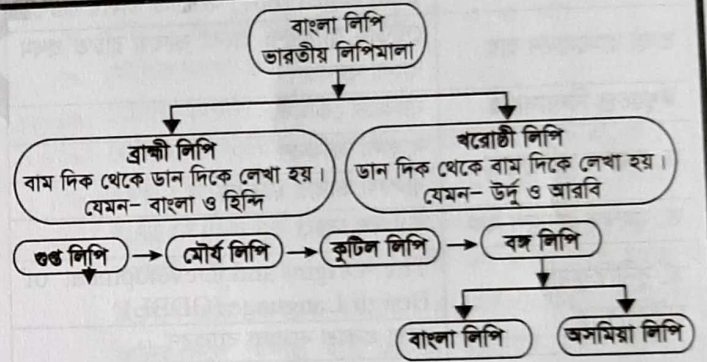 বাংলা লিপি
ভারতীয় লিপিমালা
ব্রাহ্মী লিপি
বাম দিক থেকে ডান দিকে লেখা হয়।
যেমন- বাংলা ও হিন্দি
খরোষ্ঠী লিপি
ডান দিক থেকে বাম দিকে লেখা হয়।
যেমন- উর্দু ও আরবি
গুপ্ত লিপি
মৌর্য লিপি
কুটিল লিপি
বঙ্গ লিপি
বাংলা লিপি
অসমিয়া লিপি